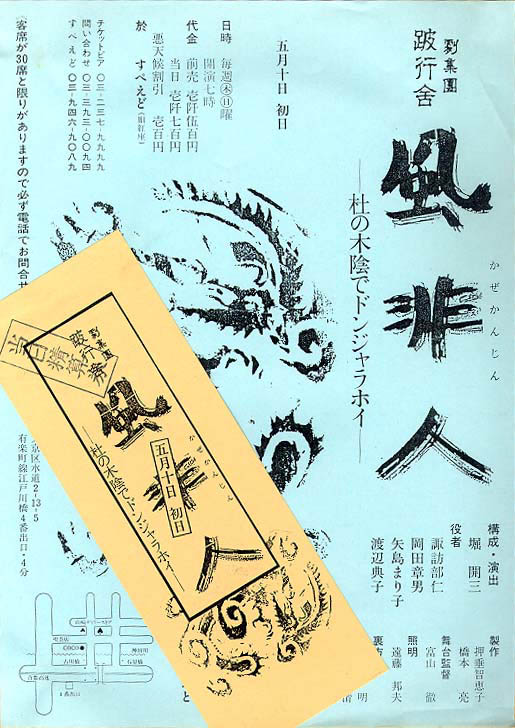 劇集團
跛行舎
風非人
かぜかんじん
―杜の木陰でドンジャラホイ―
構成・演出
堀 開三
役者
諏訪部仁
岡田章男
矢島まり子
渡辺典子
製作
押垂智恵子
橋本 亮
舞台監督
富山 徹
照明
遠藤 邦夫
五月十日 初日
日時 毎週木日曜
開演七時
代金 前売 壱阡伍百円
当日 壱阡七百円
悪天候割引 壱百円
於 すぺえど
チケットピア 〇三-二三七-九九九九
問い合わせ 〇三-三九三-〇〇九四
すぺえど 〇三-九四六-九〇八九
客席が30席と限りがありますので必ず電話でお問合せ
京区水道2-13-5
有楽町線江戸川橋4番出口・4分
4番出口
当日精算券
劇集團
跛行舎
風非人
かぜかんじん
五月十日 初日
―杜の木陰でドンジャラホイ―